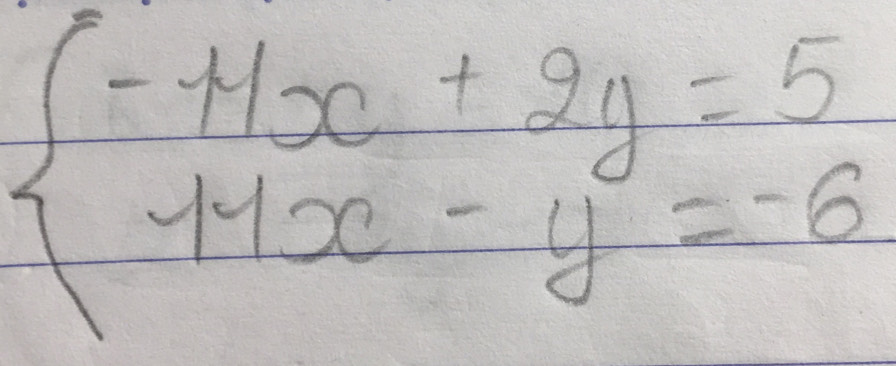 -11x + 2y = 5
11x - y = -6